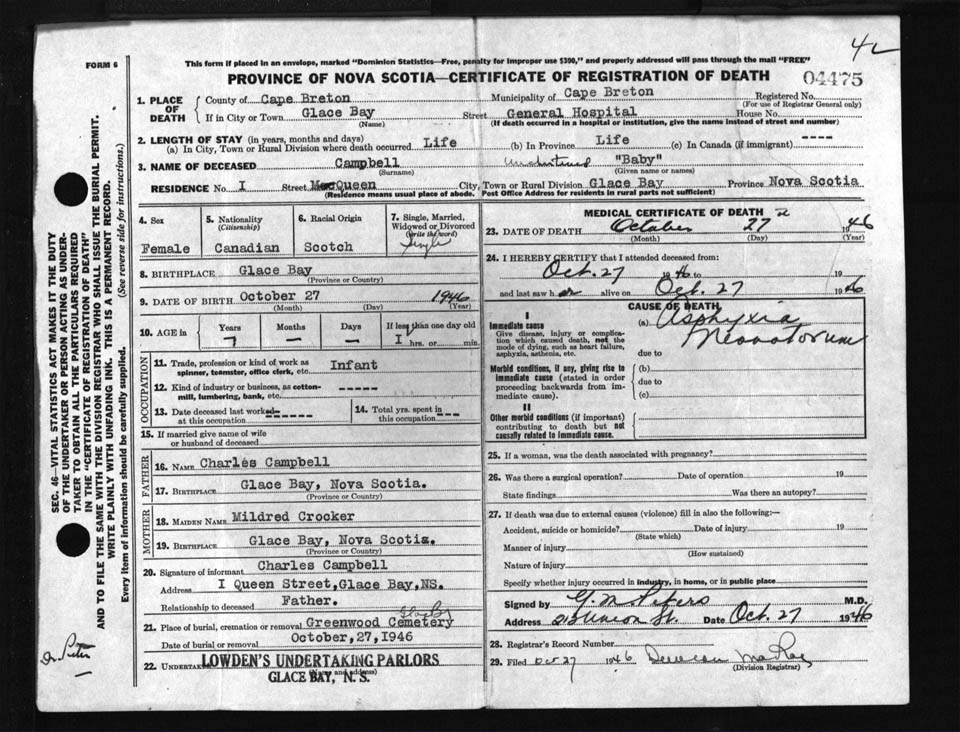 42
FORM 6
This form if placed in an envelope, marked "Dominion Statistics—Free, penalty for improper use $300," and properly addressed will pass through the mail "FREE"
PROVINCE OF NOVA SCOTIA—CERTIFICATE OF REGISTRATION OF DEATH
04475
1. PLACE OF DEATH
County of Cape Breton Municipality of Cape Breton Registered No.
(For use of Registrar General only)
If in City or Town Glace Bay Street General Hospital House No.
(Name) (If death occurred in a hospital or institution, give the name instead of street and number)
2. LENGTH OF STAY (in years, months and days)
(a) In City, Town or Rural Division where death occurred Life (b) In Province Life (c) In Canada (if immigrant) ----
3. NAME OF DECEASED Campbell "Baby"
(Surname) (Given name or names)
RESIDENCE No. I Street Queen City, Town or Rural Division Glace Bay Province Nova Scotia
(Residence means usual place of abode. Post Office Address for residents in rural parts not sufficient)
4. Sex
Female
5. Nationality
(Citizenship)
Canadian
6. Racial Origin
Scotch
7. Single, Married, Widowed or Divorced
(write the word)
Single
8. BIRTHPLACE Glace Bay
(Province or Country)
9. DATE OF BIRTH October 27 1946
(Month) (Day) (Year)
10. AGE in
Years Months Days If less than one day old
I hrs. or min.
OCCUPATION
11. Trade, profession or kind of work as spinner, teamster, office clerk, etc. Infant
12. Kind of industry or business, as cotton-mill, lumbering, bank, etc. -----
13. Date deceased last worked at this occupation ------
14. Total yrs. spent in this occupation ---
15. If married give name of wife or husband of deceased
FATHER
16. NAME Charles Campbell
17. BIRTHPLACE Glace Bay, Nova Scotia.
(Province or Country)
MOTHER
18. MAIDEN NAME Mildred Crocker
19. BIRTHPLACE Glace Bay, Nova Scotia.
(Province or Country)
20. Signature of informant Charles Campbell
Address I Queen Street, Glace Bay, NS.
Relationship to deceased Father.
Glace Bay
21. Place of burial, cremation or removal Greenwood Cemetery
Date of burial or removal October, 27, 1946
22. UNDERTAKER LOWDEN'S UNDERTAKING PARLORS
(Name and address)
GLACE BAY, N. S.
MEDICAL CERTIFICATE OF DEATH
23. DATE OF DEATH October 27 1946
(Month) (Day) (Year)
24. I HEREBY CERTIFY that I attended deceased from:
Oct. 27 1946 to 19
and last saw her alive on Oct. 27 1946
CAUSE OF DEATH
I
Immediate cause
Give disease, injury or complication which caused death, not the mode of dying, such as heart failure, asphyxia, asthenia, etc.
(a) Asphyxia
Neonatorum
due to
Morbid conditions, if any, giving rise to immediate cause (stated in order proceeding backwards from immediate cause).
(b)
due to
(c)
II
Other morbid conditions (if important) contributing to death but not causally related to immediate cause.
25. If a woman, was the death associated with pregnancy?
26. Was there a surgical operation? Date of operation 19
State findings Was there an autopsy?
27. If death was due to external causes (violence) fill in also the following:—
Accident, suicide or homicide? Date of injury 19
(State which)
Manner of injury
(How sustained)
Nature of injury
Specify whether injury occurred in industry, in home, or in public place
Signed by M.D.
Address Union St. Date Oct. 27 1946
28. Registrar's Record Number
29. Filed Oct 27 1946
(Division Registrar)
SEC. 46—VITAL STATISTICS ACT MAKES IT THE DUTY
OF THE UNDERTAKER OR PERSON ACTING AS UNDER-
TAKER TO OBTAIN ALL THE PARTICULARS REQUIRED
IN THE "CERTIFICATE OF REGISTRATION OF DEATH"
AND TO FILE THE SAME WITH THE DIVISION REGISTRAR WHO SHALL ISSUE THE BURIAL PERMIT.
WRITE PLAINLY WITH UNFADING INK. THIS IS A PERMANENT RECORD.
Every item of information should be carefully supplied. (See reverse side for instructions.)